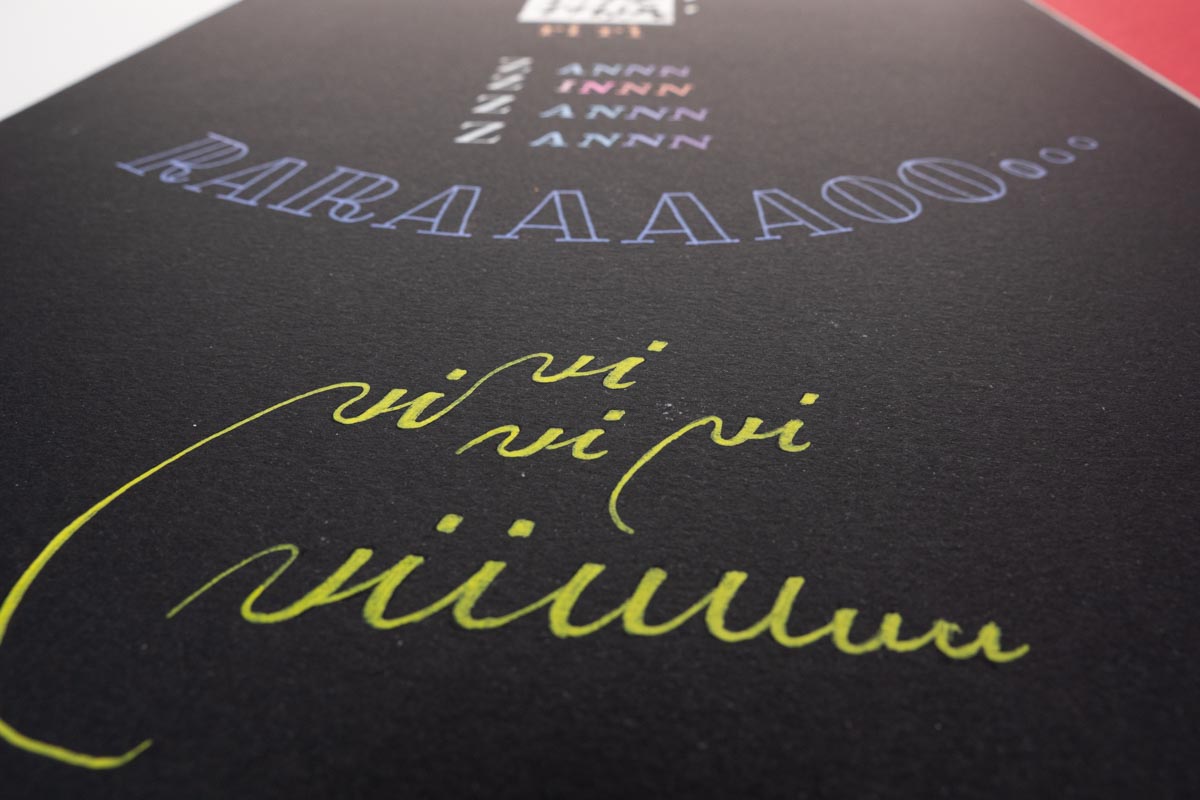 ANNN
INNN
ANNN
ANNN
RARAAAAOOooo
vi vi
vi vi
viiuuuu